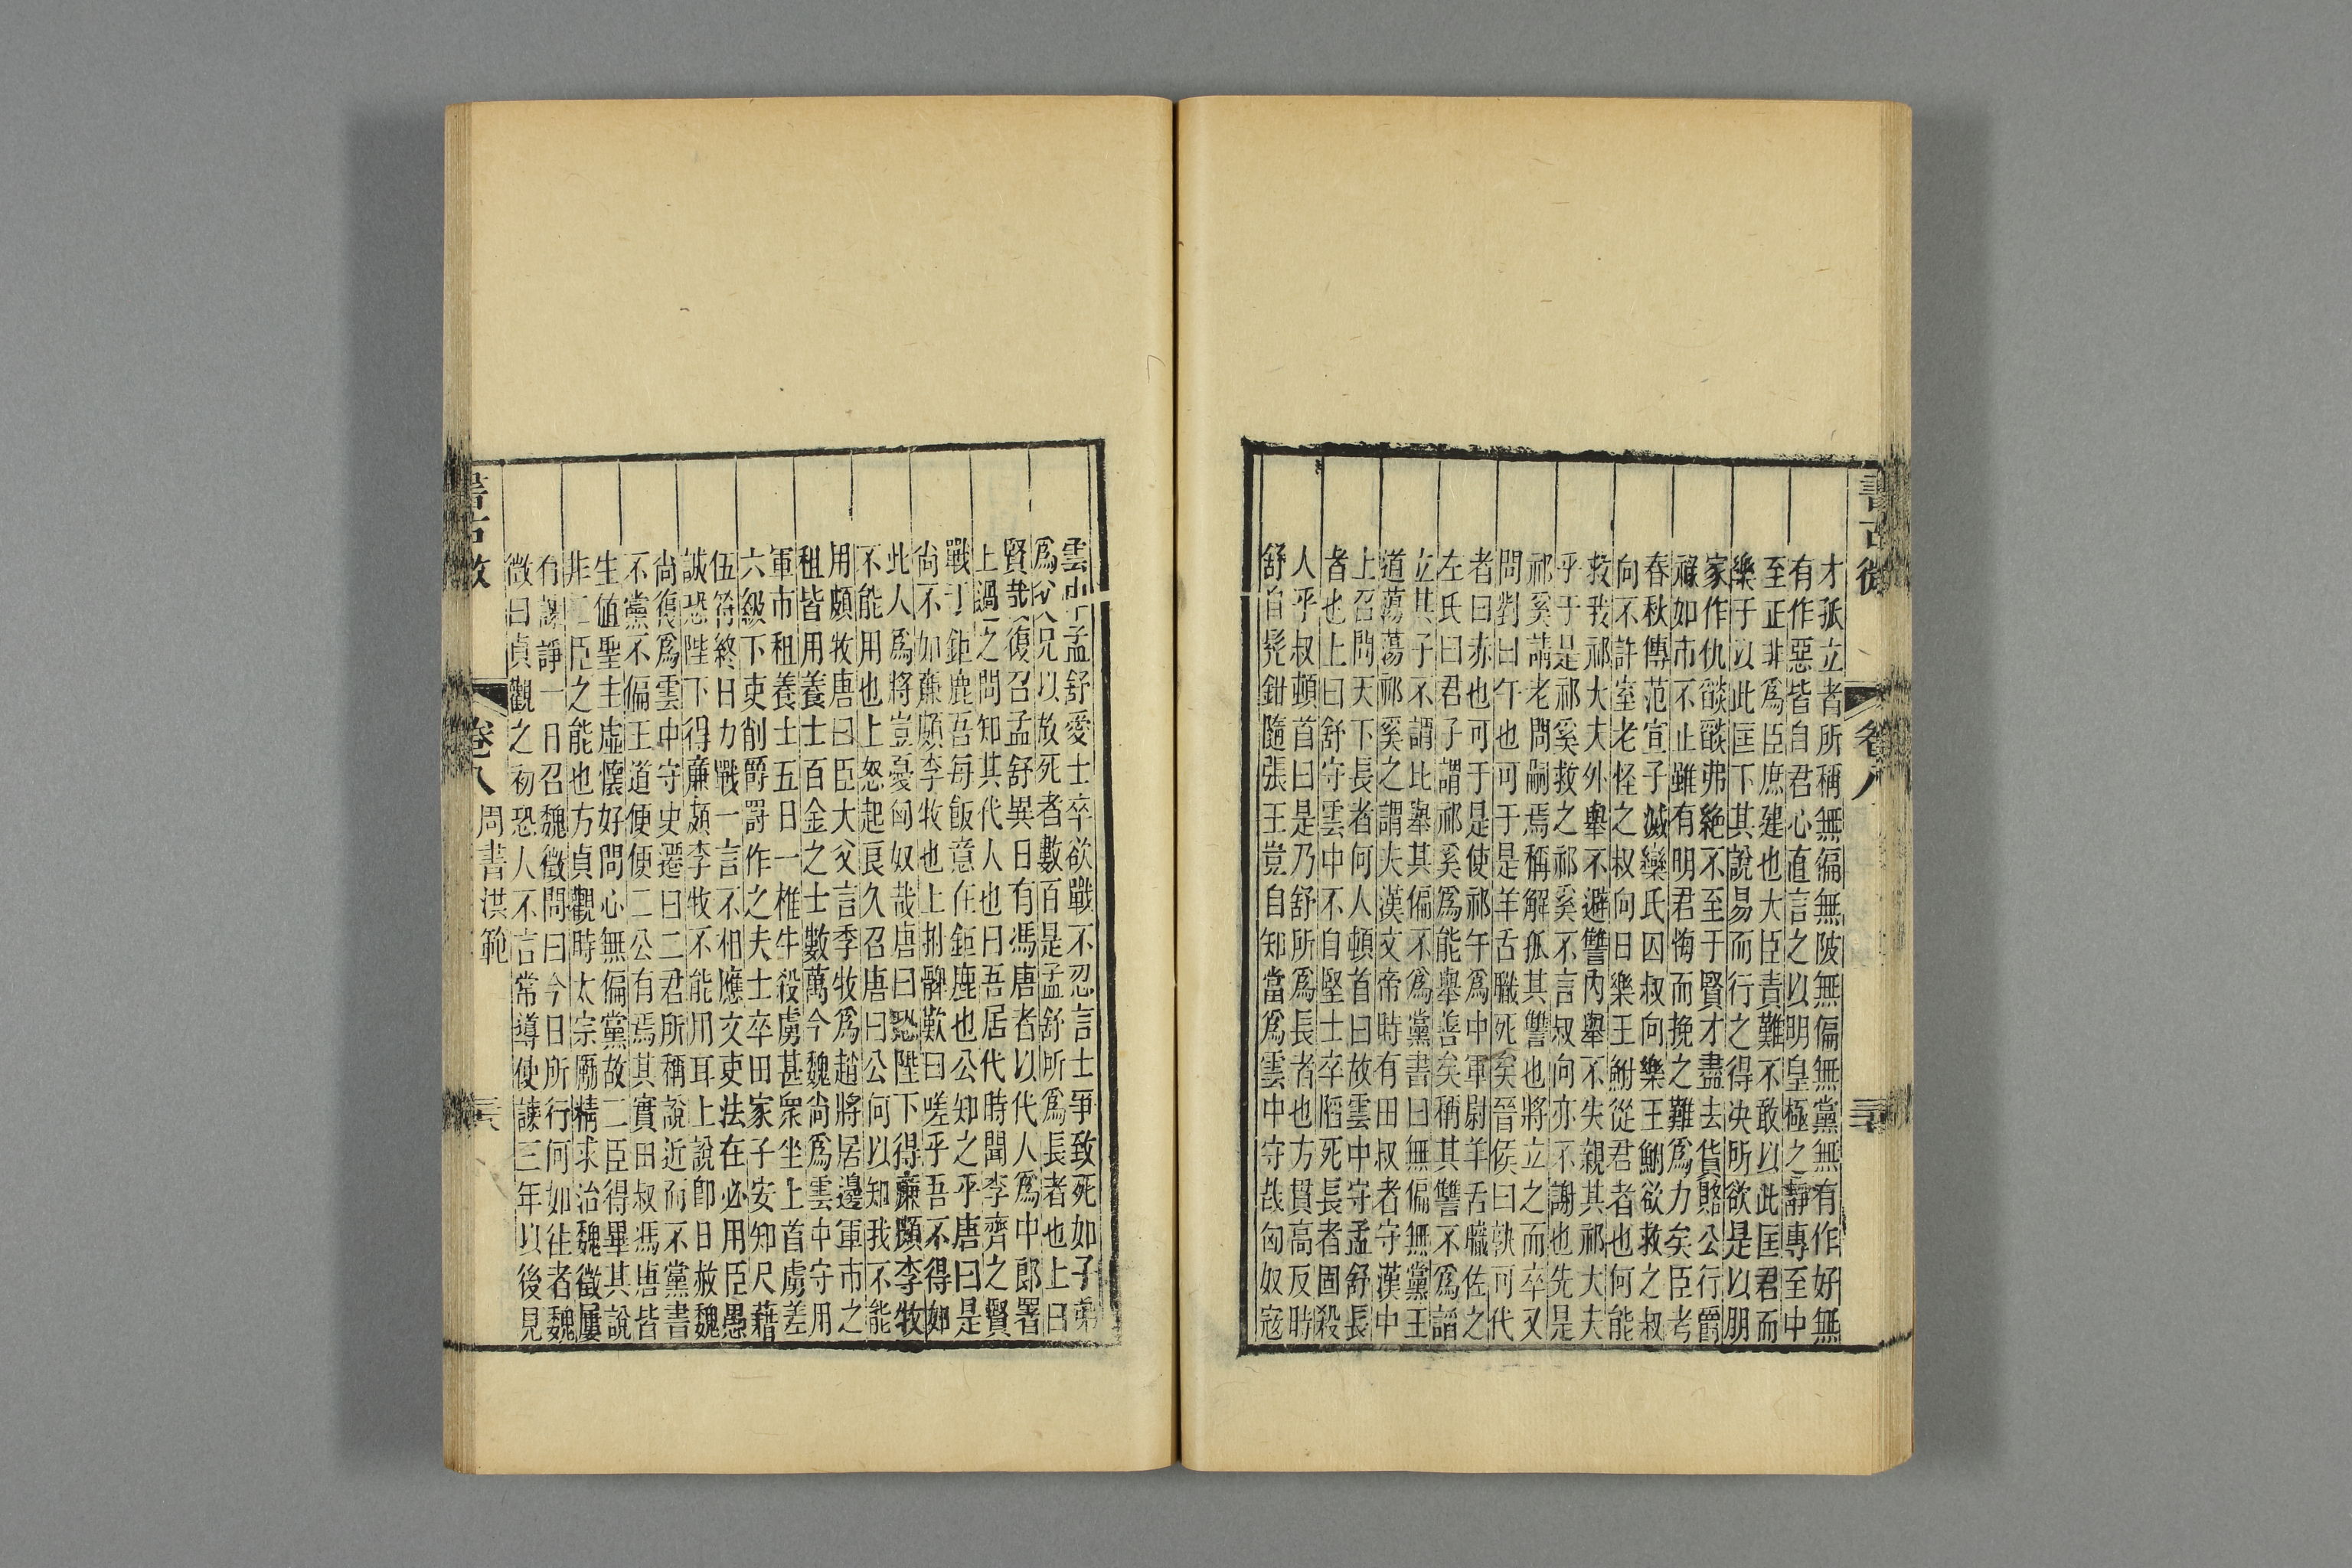 書古微
卷八
才孤立者所稱無偏無陂無偏無黨無有作好無
有作惡皆自君心直言之以明皇極之靜專至中
至正非爲臣庶建也大臣責難不敢以此匡君而
樂于以此匡下其說易而行之得決所欲是以朋
家作仇燄燄弗絶不至于賢才盡去貨賂公行爵
祿如市不止雖有明君悔而挽之難爲力矣臣考
春秋傳范宣子滅欒氏囚叔向樂王鮒欲救之叔
向不許室老怪之叔向曰樂王鮒從君者也何能
救我祁大夫外舉不避讐內舉不失親其祁大夫
乎于是祁奚救之祁奚不言叔向亦不謝也先是
祁奚請老問嗣焉稱解孤其讐也將立之而卒又
問對曰午也可于是羊舌職死矣晉侯曰孰可代
者曰赤也可于是使祁午爲中軍尉羊舌職佐之
左氏曰君子謂祁奚爲能舉善矣稱其讐不爲諂
立其子不謂比舉其偏不爲黨書曰無偏無黨王
道蕩蕩祁奚之謂夫漢文帝時有田叔者守漢中
上召問天下長者何人頓首曰故雲中守孟舒長
者也上曰舒守雲中不自堅士卒陷死長者固殺
人乎叔頓首曰是乃舒所爲長者也方貫高反時
舒自髡鉗隨張王豈自知當爲雲中守哉匈奴寇
雲中孟舒愛士卒欲戰不忍言士爭致死如子弟
爲父兄以故死者數百是孟舒所爲長者也上曰
賢哉復召孟舒異日有馮唐者以代人爲中郎署
上過之問知其代人也曰吾居代時聞李齊之賢
戰于鉅鹿吾每飯意在鉅鹿也公知之乎唐曰是
尚不如廉頗李牧也上拊髀歎曰嗟乎吾不得如
此人爲將豈憂匈奴哉唐曰恐陛下得廉頗李牧
不能用也上怒起良久召唐曰公何以知我不能
用頗牧唐曰臣大父言李牧爲趙將居邊軍市之
租皆用養士百金之士數萬今魏尚爲雲中守用
軍市租養士五日一椎牛殺虜甚衆坐上首虜差
六級下吏削爵罰作之夫士卒田家子安知尺藉
伍符終日力戰一言不相應文吏法在必用臣愚
誠恐陛下得廉頗李牧不能用耳上說卽日赦魏
尚復爲雲中守史遷曰二君所稱說近而不黨書
不黨不偏王道便便二公有焉其實田叔馮唐皆
生値聖主虛懷好問心無偏黨故二臣得畢其說
非二臣之能也方貞觀時太宗勵精求治魏徵屢
有諫諍一日召魏徵問曰今日所行何如往者魏
徵曰貞觀之初恐人不言常導使諫三年以後見
書古微
卷八 周書洪範